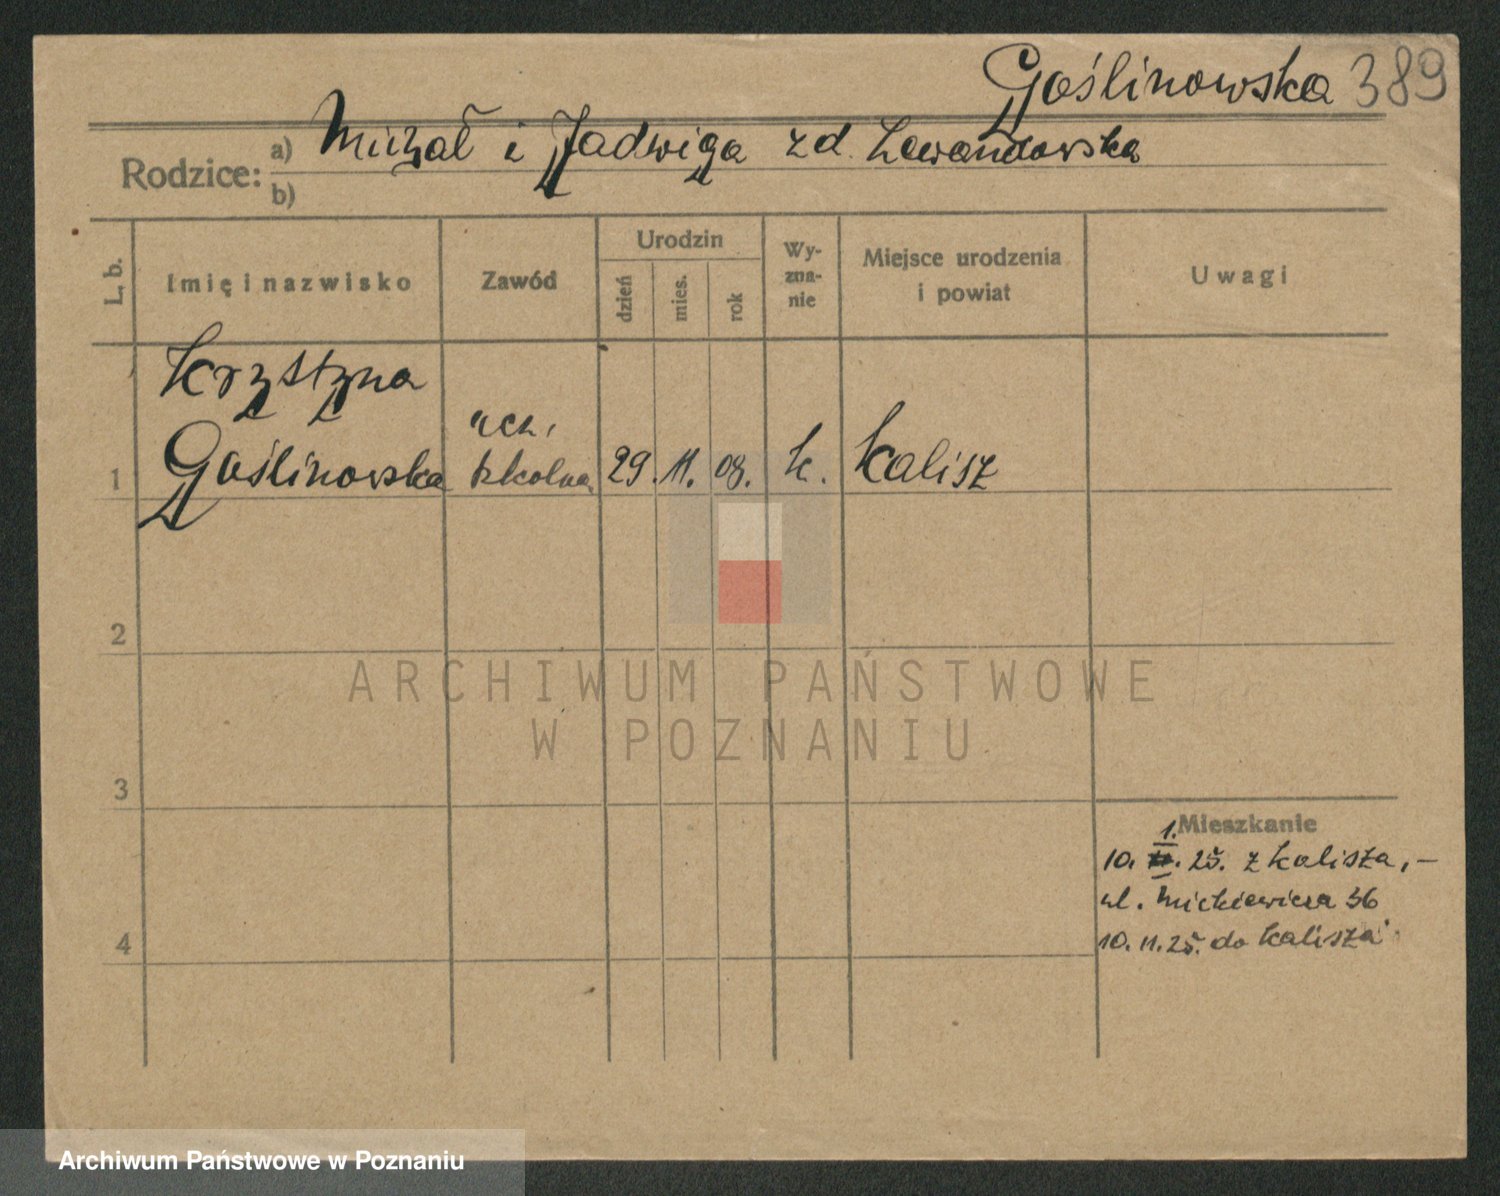 Goślinowska 389
Rodzice:
a) Michał i Jadwiga zd. Lewandowska
b)
L. b.
Imię i nazwisko
Zawód
Urodzin
dzień
mies.
rok
Wy-
zna-
nie
Miejsce urodzenia
i powiat
Uwagi
Krystyna
Goślinowska
ucz.
szkolna
1
29. 11. 08. k. Kalisz
2
3
4
Mieszkanie
10. 1. 25. z Kalisza,-
ul. Mickiewicza 36
10. 11. 25. do Kalisza
ARCHIWUM PAŃSTWOWE
W POZNANIU
Archiwum Państwowe w Poznaniu